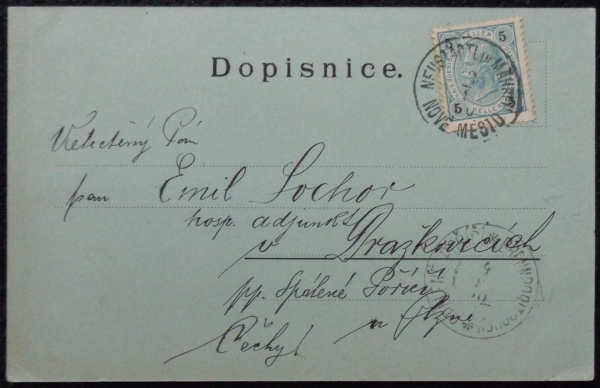 Dopisnice.
5 5
5 5
NEUSTADTL in MÄHREN
NOVÉ MĚSTO
Velectěný Pán
pan Emil Sochor
hosp. adjunkt
v Drazkovicích
pp. Spálené Poříčí
u Plzně
Čechy